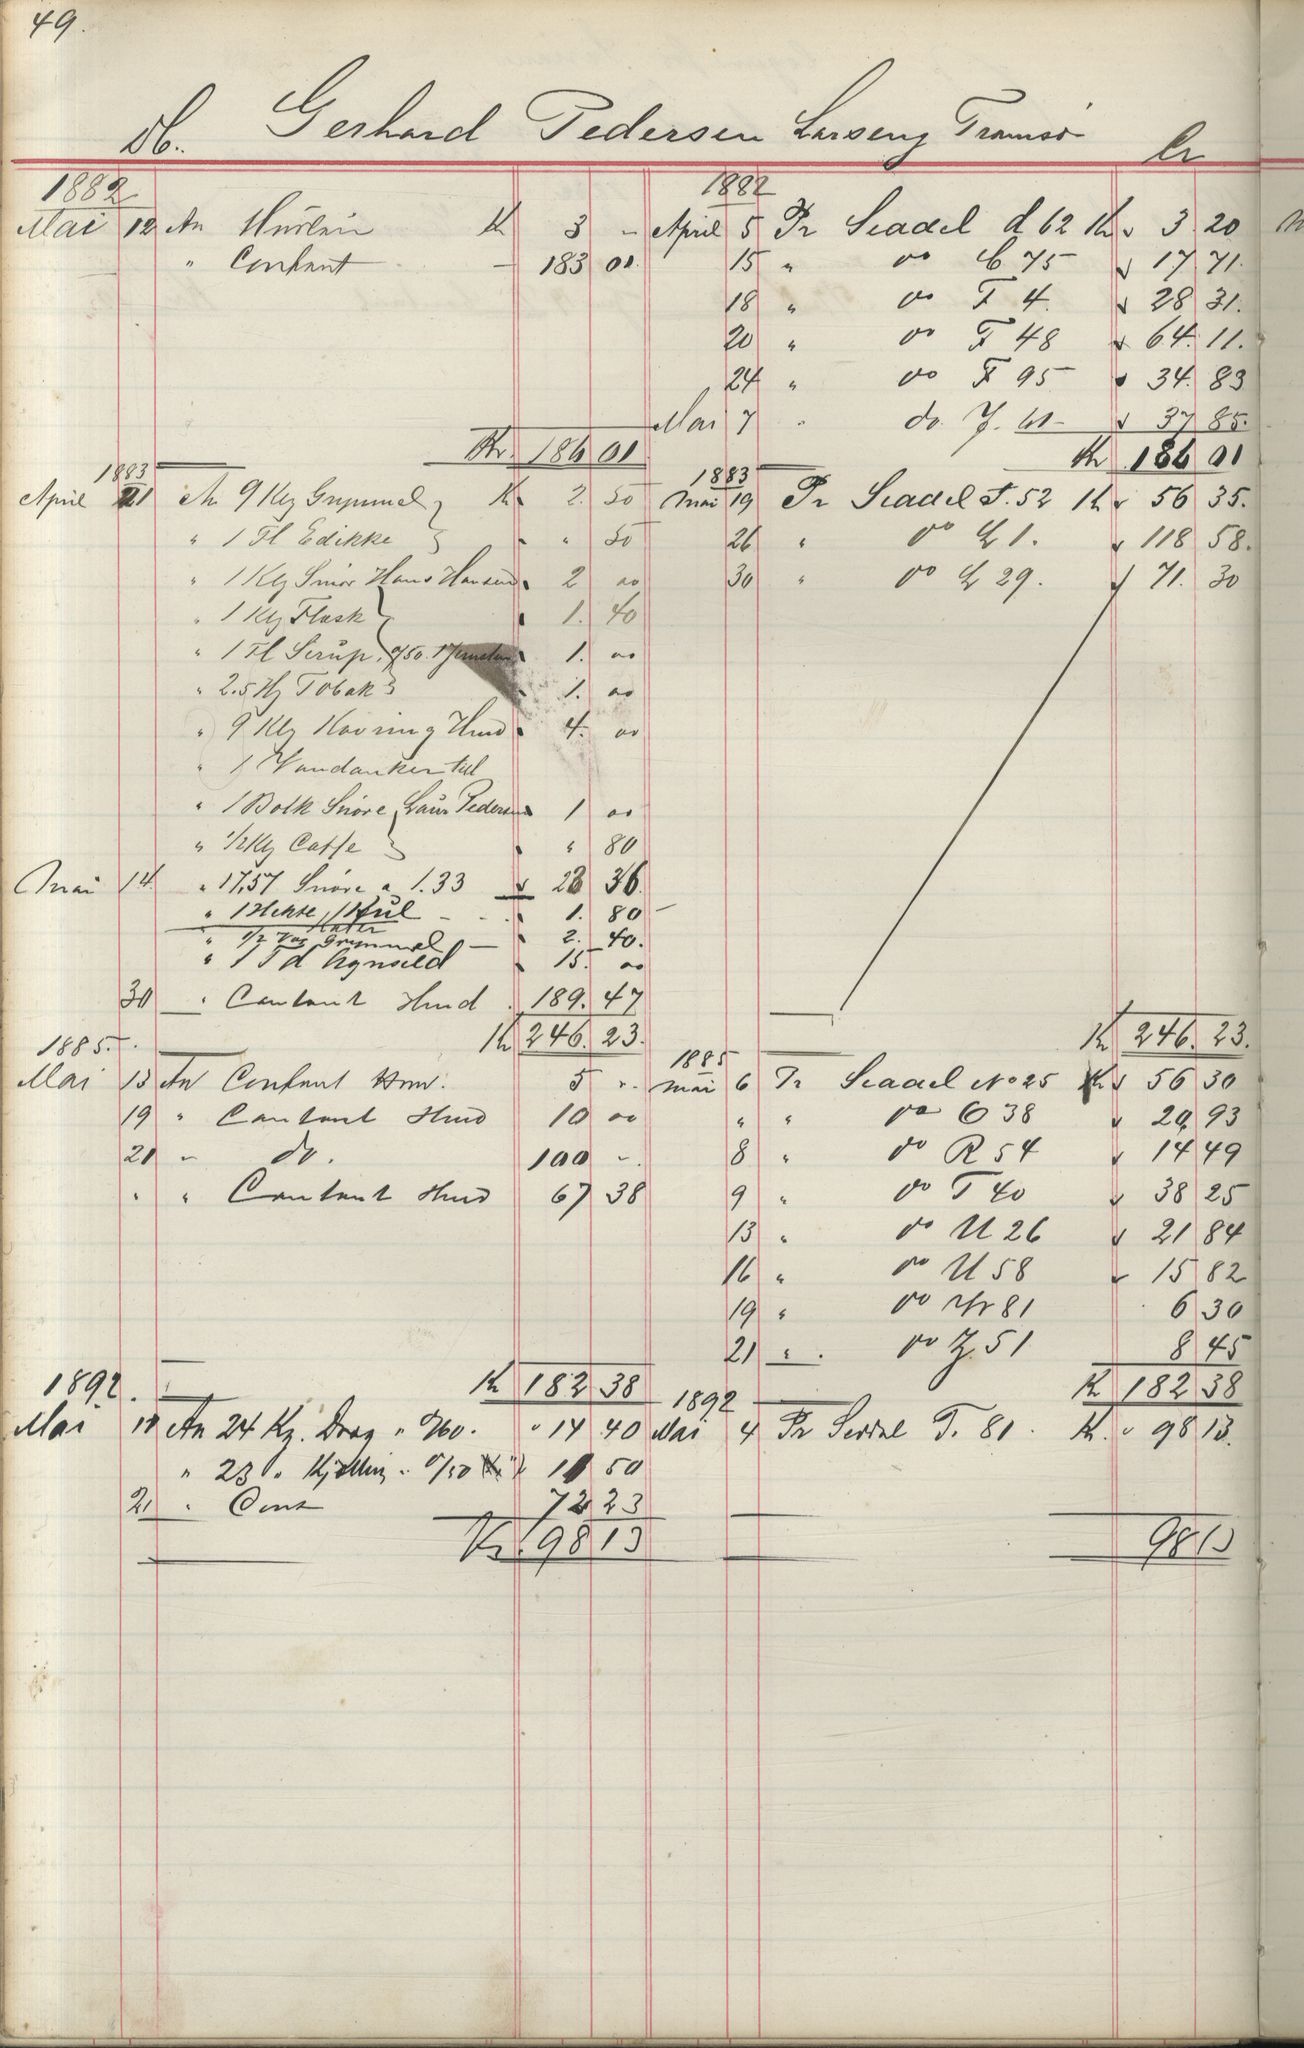 49.
Db. Gerhard Pedersen Larseng Tromsø Cr
1882
Mai 12 An Huslei Kr 3 -
" Contant - 183 01
Kr 186 01
1883
April 21 An 9 Klg Grymmel Kr 2. 50
" 1 Fl Edikke " 50
" 1 Klg Smör Hans Hansen 2 00
" 1 Klg Flæsk 1. 40
" 1 Fl Sirup. 0/50. 1. 00
" 2.5 Hg Tobak 1. 00
" 9 Klg Kavring Hmd 4. 00
" 1 Vandanker till
" 1 Bolk Snöre, Laur Pedersen 1 00
" 1/2 Klg Caffe " 80
Mai 14 " 17,57 Snöre a 1.33 23 36
" 1 Hekte, 1 Hül - 1. 80
" 1/2 Vog Grymmel - 2. 40.
" 1 Td Agnsild 15. 00
30 " Contant Hmd 189. 47
Kr 246. 23.
1885.
Mai 13 An Contant Hmd. 5 "
19 " Contant Hmd 10 00
21 " do. 100 "
" " Contant Hmd 67 38
Kr 182 38
1892.
Mai 10 An 24 Kg. Drag " 0/60. " 14 40
" 23 " Kjølling " 0/50 11 50
21 " Cont 72 23
Kr. 98 13
1882
April 5 Pr Seadel d 62 Kr 3 20
15 " do C 75 17 71.
18 " do F 4. 28 31.
20 " do F 48 64. 11.
24 " do F 95 34. 83
Mai 7 " do. J. 61 37 85.
Kr 186 01
1883
Mai 19 Pr Seadel F. 52 Kr 56 35.
26 " do L 1. 118 58.
30 " do L 29. 71. 30
Kr 246. 23.
1885
Mai 6 Pr Seadel No 25 Kr 56 30
" " do O 38 20 93
8 " do R 54 14 49
9 " do T 40 38 25
13 " do U 26 21 84
16 " do U 58 15 82
19 " do 81 6 30
21 " do Z. 51 8 45
Kr 182 38
1892
Mai 4 Pr Seddel T. 81. Kr. " 98 13.
98 13